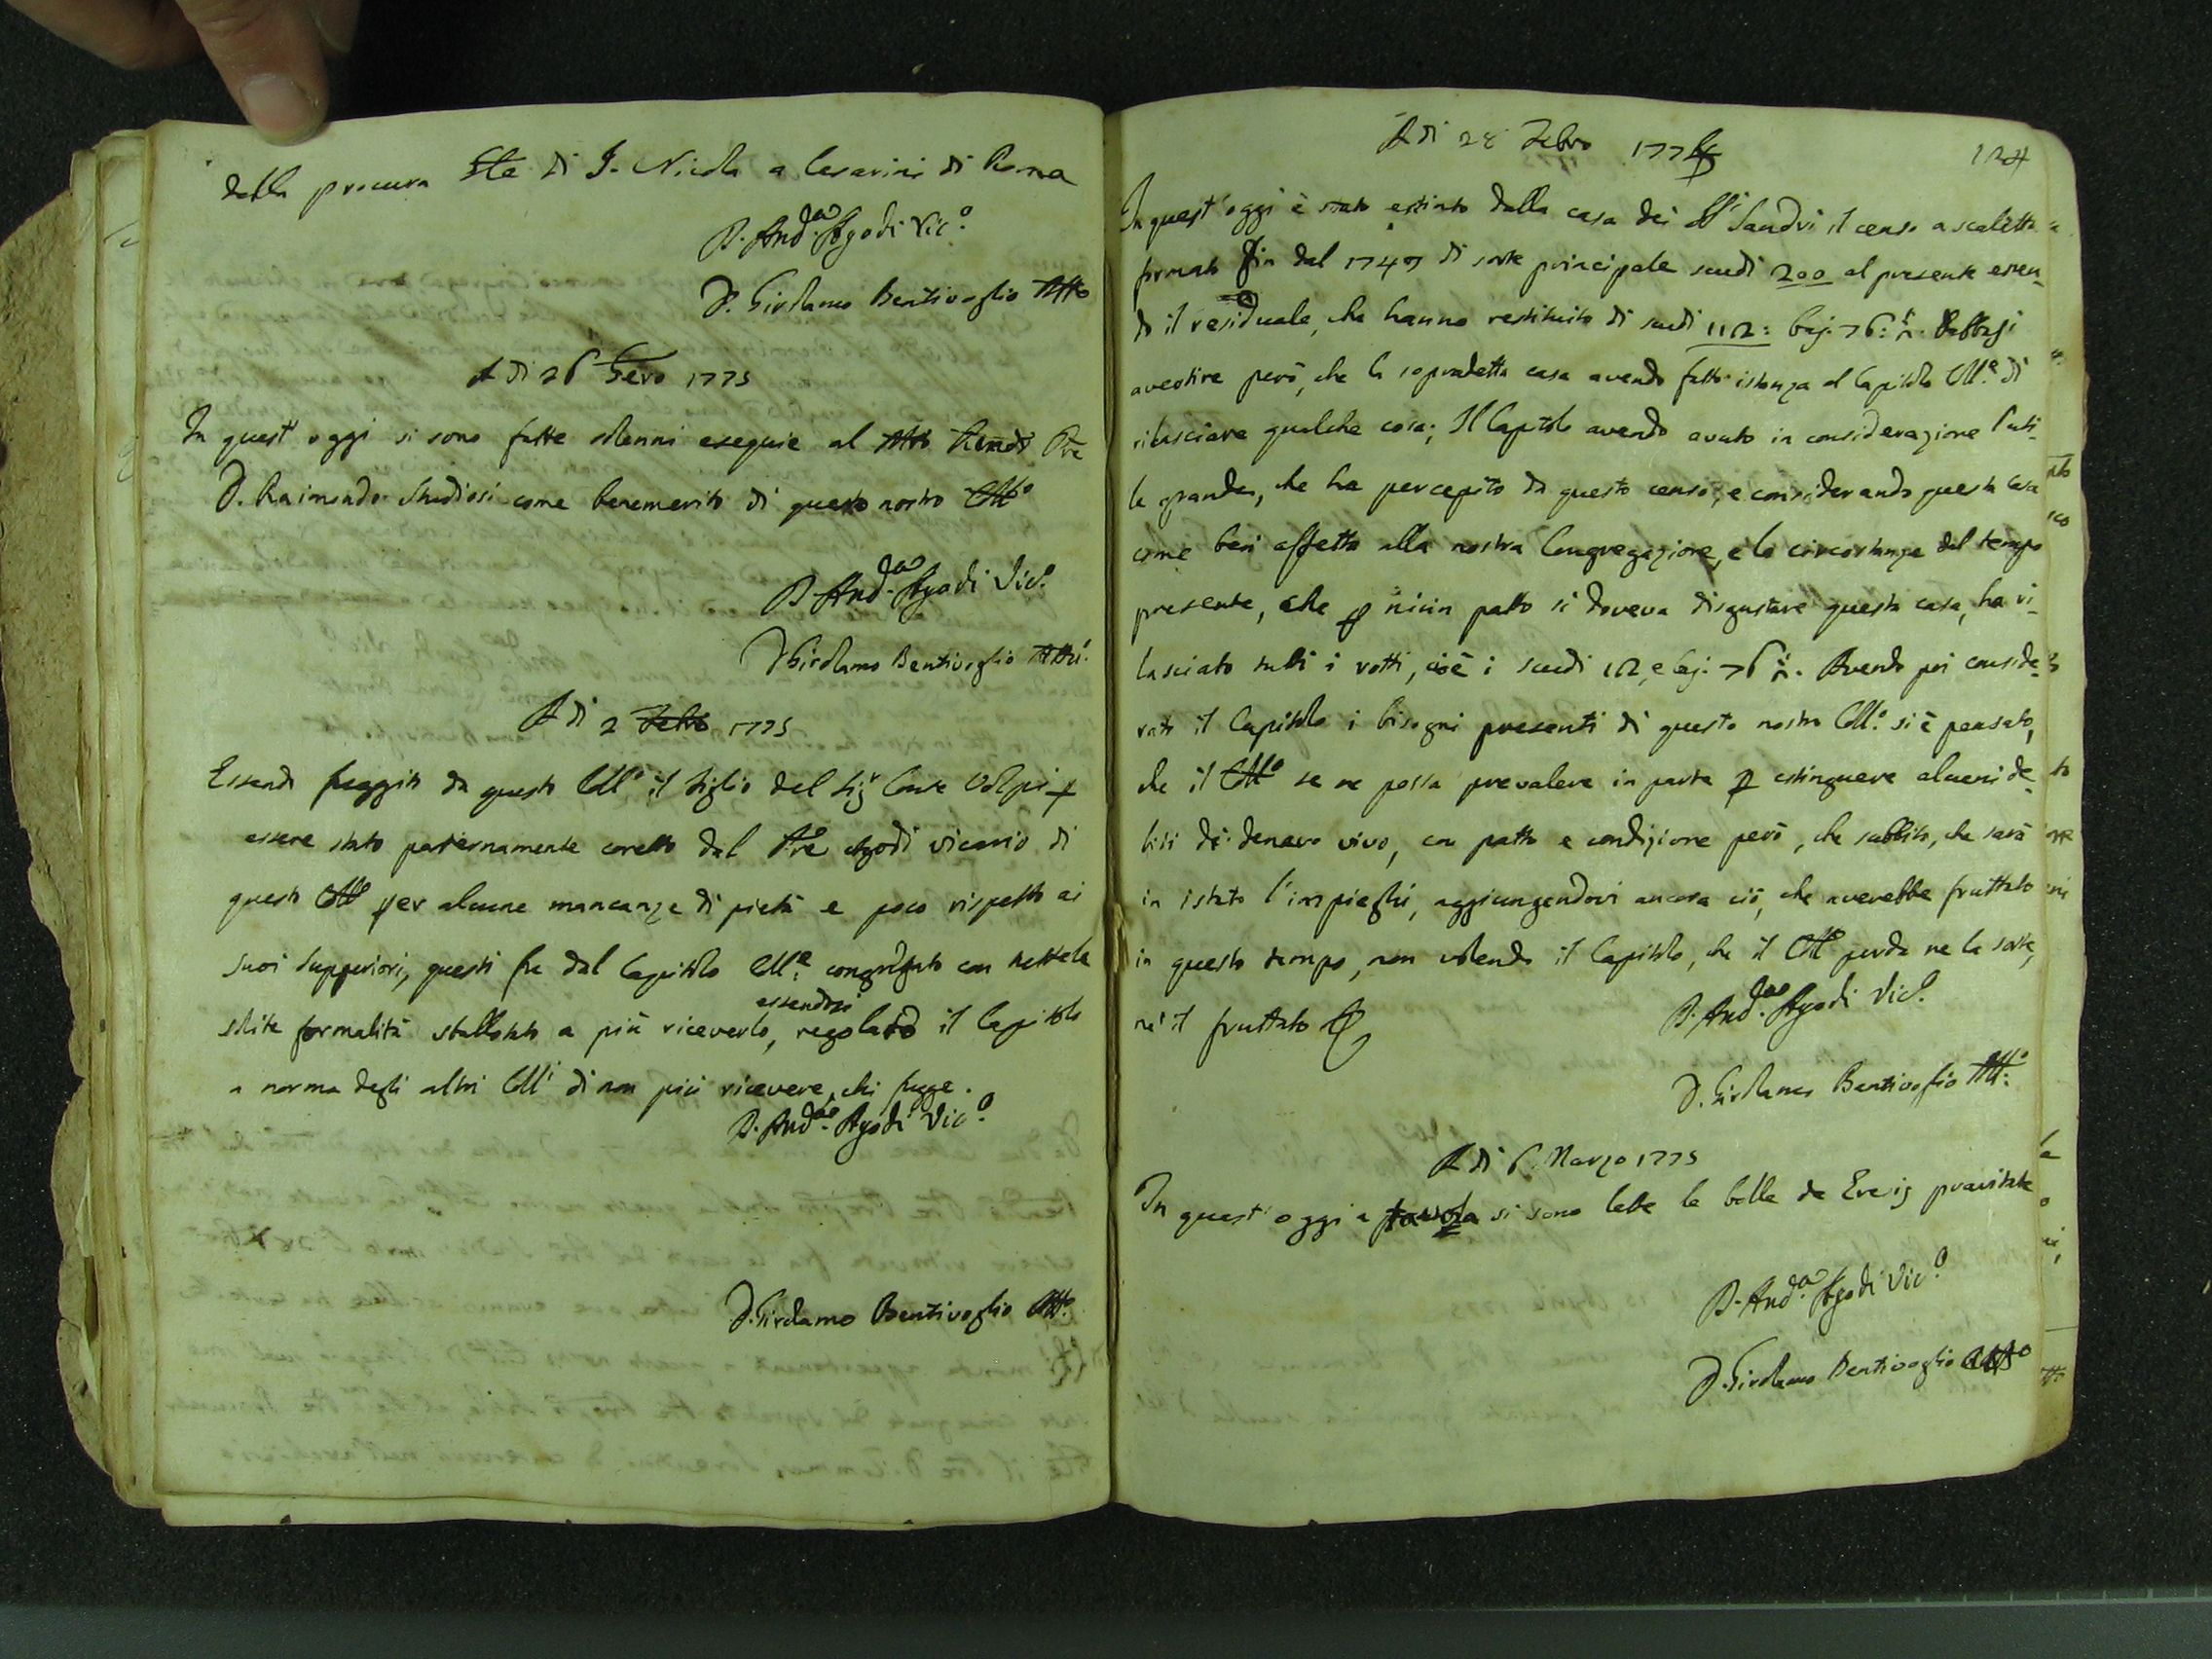 della procura Gle di S. Nicola a Cesarini di Roma
D. And.ᵃ Agodi Vic.º
D. Girolamo Bentivoglio Att.º
A di 26 Gen.º 1775
In quest' oggi si sono fatte solenni esequie al Rmo Pre
D. Raimondo Studiosi come benemerito di questo nostro Coll.º
D. And.ᵃ Agodi Vic.º
D Girolamo Bentivoglio Att.º
A di 2 Febro 1775
Essendo fuggito da questo Coll.º il figlio del Sigr Conte Volpi p
essere stato paternamente coretto dal Pre Agodi vicario di
questo Coll.º per alcune mancanze di pietà e poco rispetto ai
suoi Supperiori, questi fu dal Capitolo Coll.e congregato con tutte le
essendosi
solite formalità a più riceverlo, regolato il Capitolo
a norma degli altri Colli di non più ricevere, chi fugge.
D. And.ᵃ Agodi Vic.º
D. Girolamo Bentivoglio Att.º
A di 28 Febro 1775
124
In quest' oggi è stato estinto dalla casa dei SSri Sandri il censo a scaletta
formato fin dal 1747 di sorte principale scudi 200 al presente essen-
do il residuale, che hanno restituito di scudi 112: baj. 76: ½. Dobbesi
avertire però, che la sopradetta casa avendo fatto istanza al Capitolo Coll.e di
rilasciare qualche cosa; Il Capitolo avendo avuto in considerazione l'uti-
le grande, che ha percepito da questo censo, e considerando questa casa
come ben affetta alla nostra Congregazione, e le circostanze del tempo
presente, che p niun patto si doveva disgustare questa casa, ha ri-
lasciato tutti i rotti, cioè i scudi 12, e baj. 76 ½. Avendo poi conside-
rato il Capitolo i bisogni presenti di questo nostro Coll.º si è pensato,
che il Coll.º se ne possa prevalere in parte p estinguere alcuni de-
biti di denaro vivo, con patto e condizione però, che subbito, che sarà
in istato l'inspieghi, aggiungendovi ancora ciò, che averebbe fruttato
in questo tempo, non volendo il Capitolo, che il Coll.º perda ne la sorte,
ne' il fruttato
D. And.ᵃ Agodi Vic.º
D. Girolamo Bentivoglio Att.º
A di 6 Marzo 1775
In quest' oggi a tavola si sono lette le bolle de Ereis pravitate
D. And.ᵃ Agodi Vic.º
D. Girolamo Bentivoglio Att.º